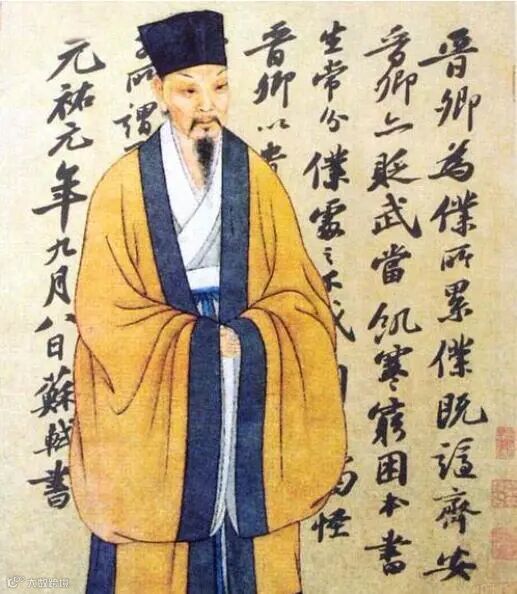 晉卿為僕所累僕既謫齊安
晉卿亦貶武當飢寒窮困本書
生常分僕處之不戚 怪
晉卿以貴
所謂
元祐元年九月八日蘇軾書
大数跨境